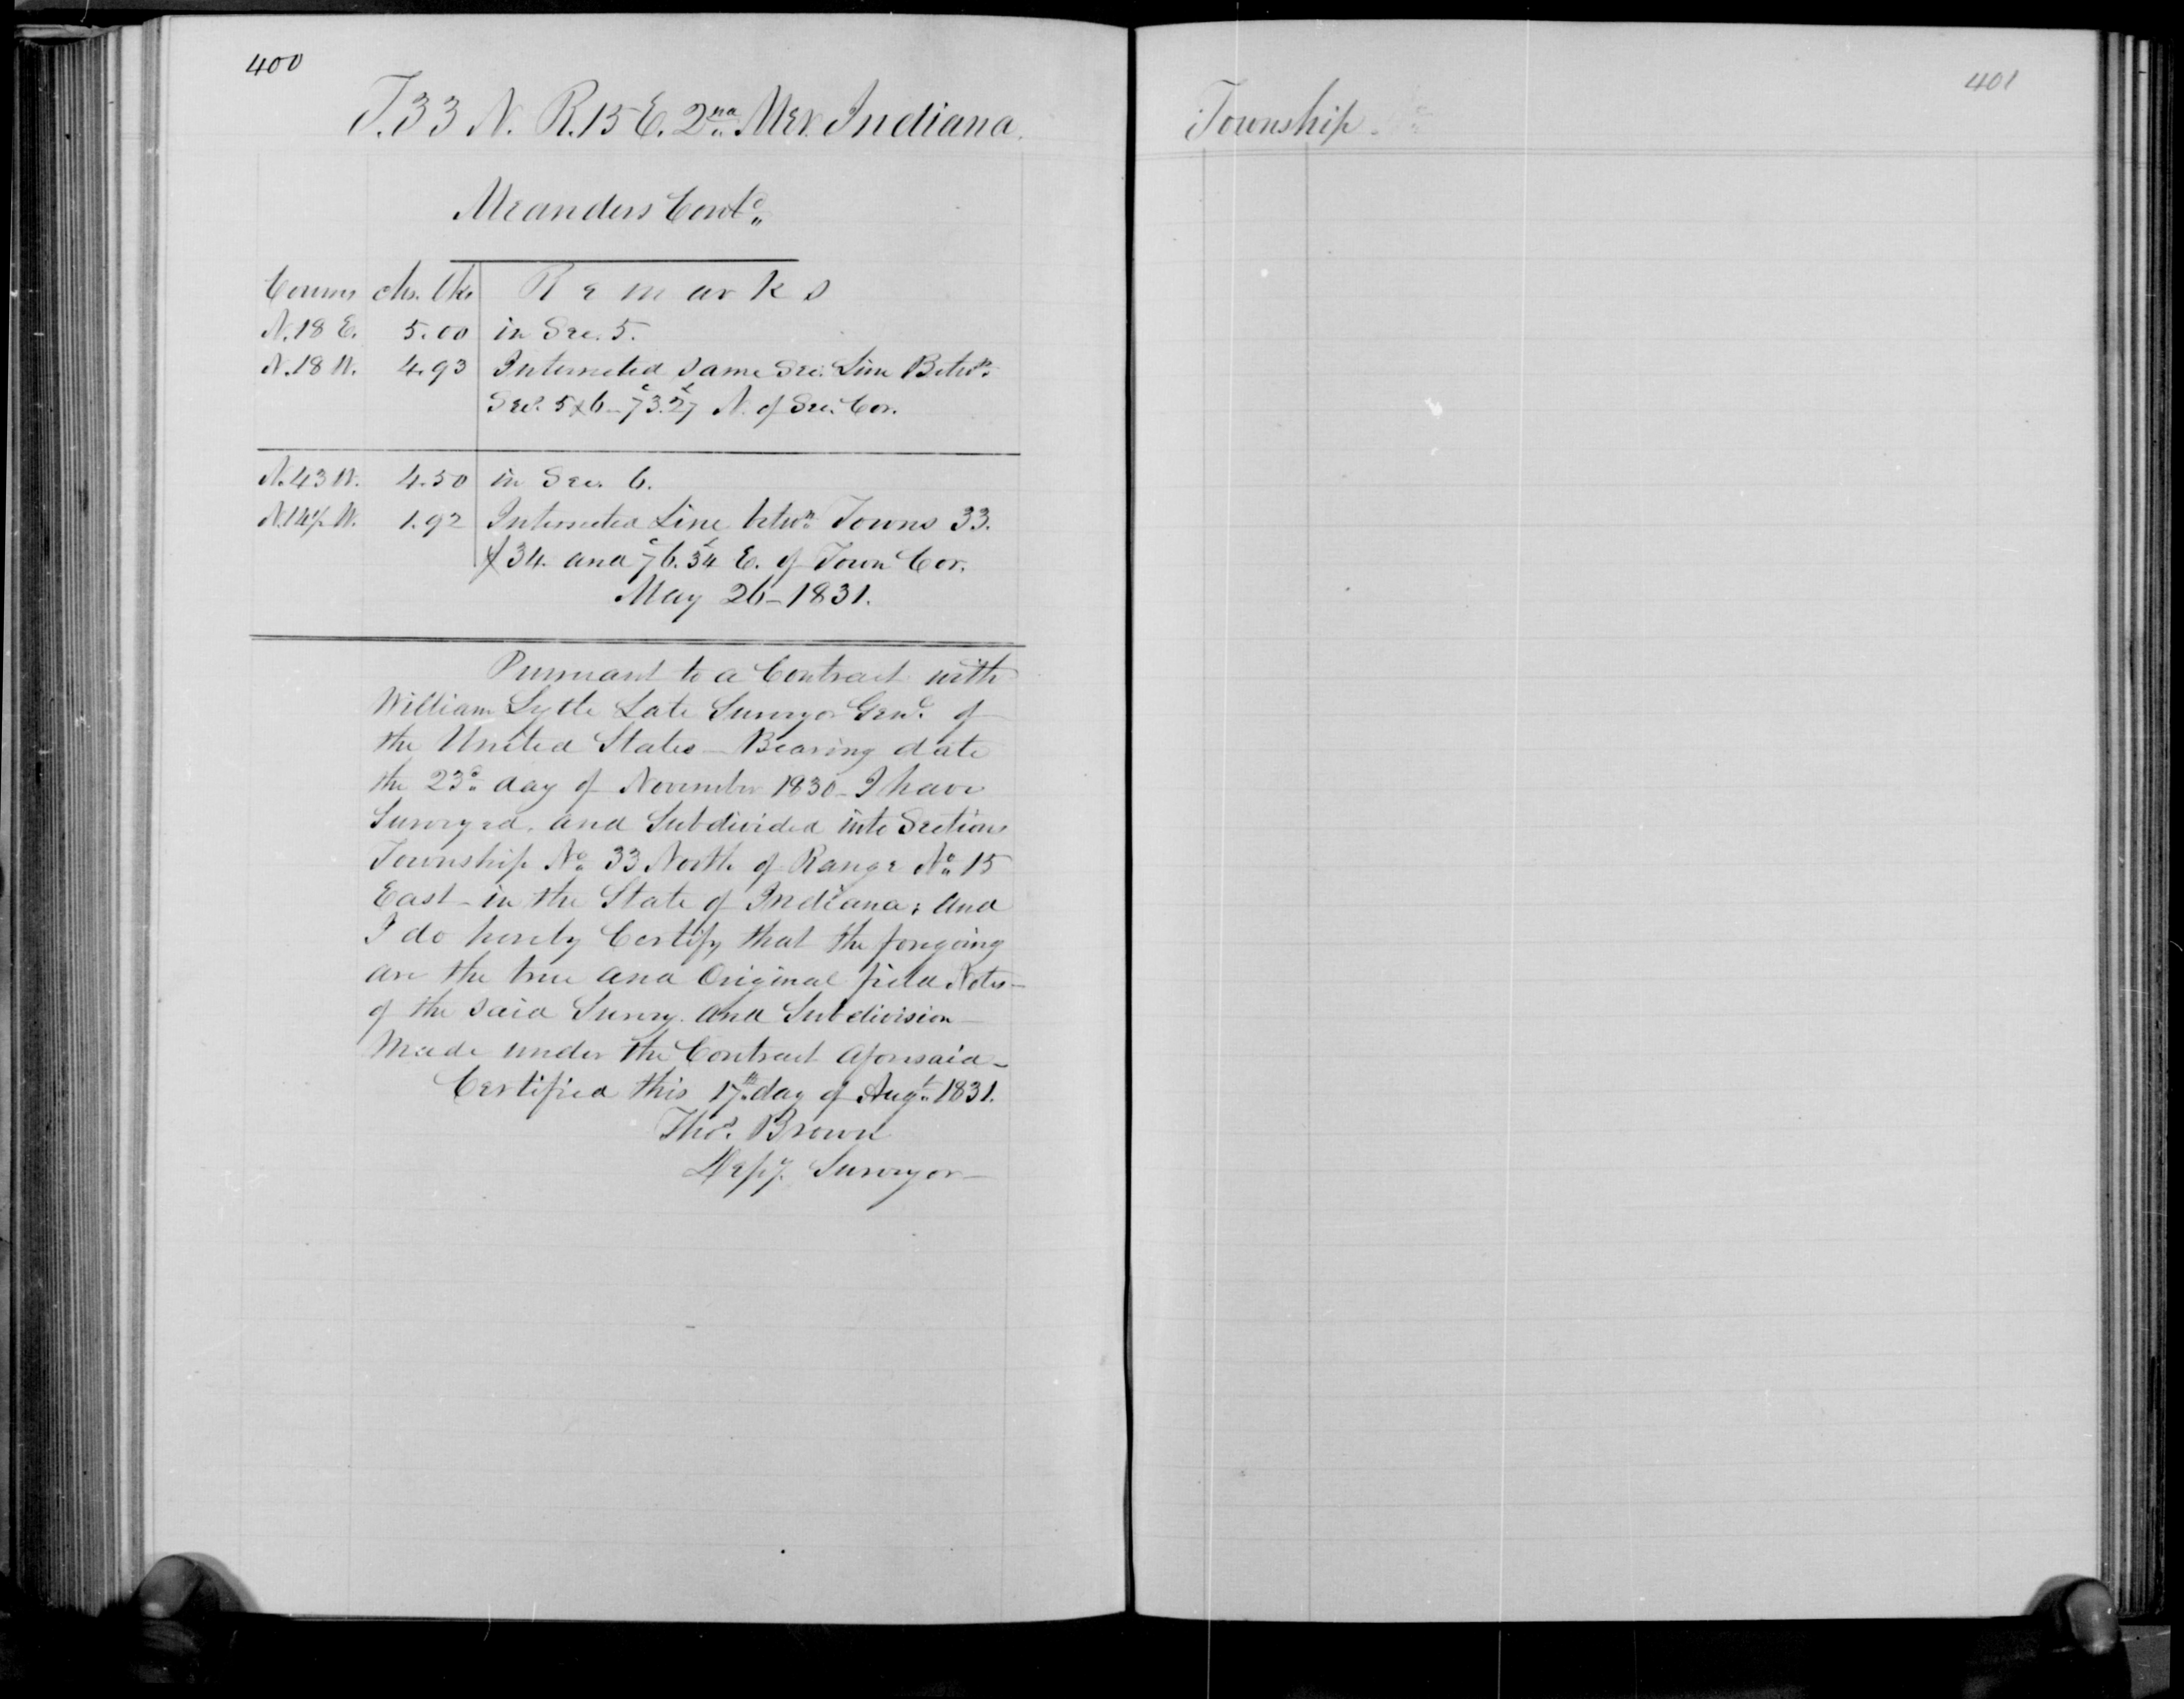 400
T.33 N. R.15 E. 2nd Mer. Indiana.
Meanders Contd.
Courses chs. lks Remarks
N.18 E. 5.00 in Sec. 5.
N.18 W. 4.93 Intersected same Sec. Line Betwn.
Secs. 5 & 6 - 73.27 N. of Sec. Cor.
N.43 W. 4.50 in Sec. 6.
N.14½ W. 1.92 Intersected Line betwn. Towns 33.
& 34. and 76.34 E. of Town Cor.
May 26 - 1831.
Pursuant to a Contract with
William Lytle Late Surveyor Genl. of
the United States - Bearing date
the 23d. day of November 1830 - I have
Surveyed, and Subdivided into Sections
Township No. 33 North of Range No. 15
East - in the State of Indiana; and
I do hereby Certify that the foregoing
are the true and Original field Notes -
of the said Survey. and Subdivision -
Made under the Contract aforesaid -
Certified this 17th. day of Augt. 1831.
Thos. Brown
Depy. Surveyor -
401
Township